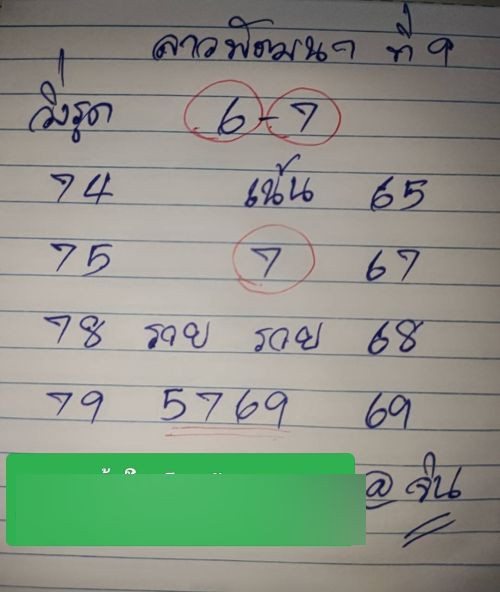 ลาวพัฒนา ที่ 9
วิ่งรูด 6-7
74 เน้น 65
75 7 67
78 รวย รวย 68
79 5769 69
@ จิน